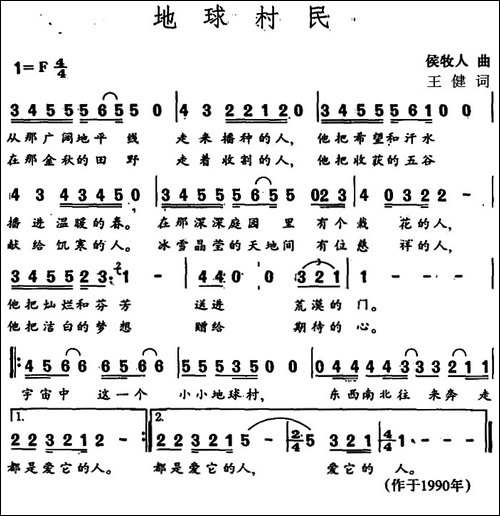 地球村民
1=F 4/4
侯牧人 曲
王健 词
3 4 5 5 5 6 5 5 0 | 4 3 2 2 1 2 0 | 3 4 5 5 5 6 1 0 0 |
从那广阔地平线 走来播种的人, 他把希望和汗水
在那金秋的田野 走着收割的人, 他把收获的五谷
4 3 4 3 4 5 0 | 3 4 5 5 5 5 6 5 | 5 0 2 3 | 4 0 3 2 2 - |
播进温暖的春。 在那深深庭园里 有个栽花的人,
献给饥寒的人。 冰雪晶莹的天地间 有位慈祥的人,
3 4 5 5 5 2 3· | - 4 4 0 | 0 0 3 2 1 | 1 - - - |
他把灿烂和芬芳 送进 荒漠的门。
他把洁白的梦想 赠给 期待的心。
4 5 6 6 6 5 6 6 | 5 5 5 3 5 0 0 | 0 4 4 4 4 3 3 3 2 1 |
宇宙中 这一个 小小地球村, 东西南北往来奔走
1. 2.
2 2 3 2 1 2 - :| 2 2 3 2 1 5 - | 2/4 5 3 2 1 | 4/4 1 - - - |
都是爱它的人。 都是爱它的人, 爱它的人。
(作于1990年)